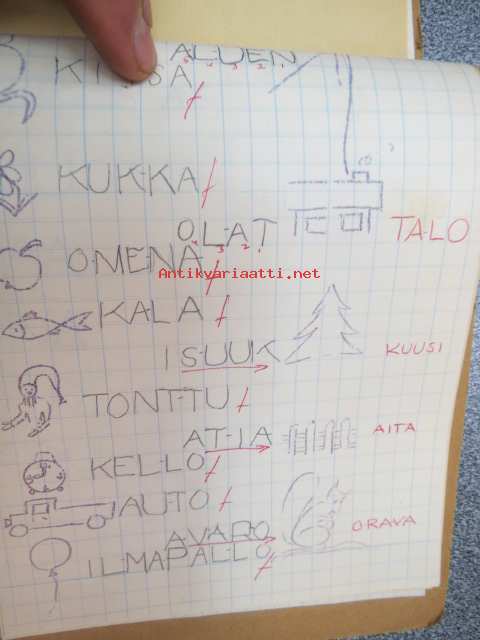 ALUEN
5 4 3 2 1
KISSA
KUK-KA
OLAT
4 3 2 1
TALO
O-ME-NA
Antikvariaatti.net
KALA
ISUUK
KUUSI
TONT-TU
AT-IA
AITA
KEL-LO
AUTO
AVARO
ORAVA
IL-MAPALLO